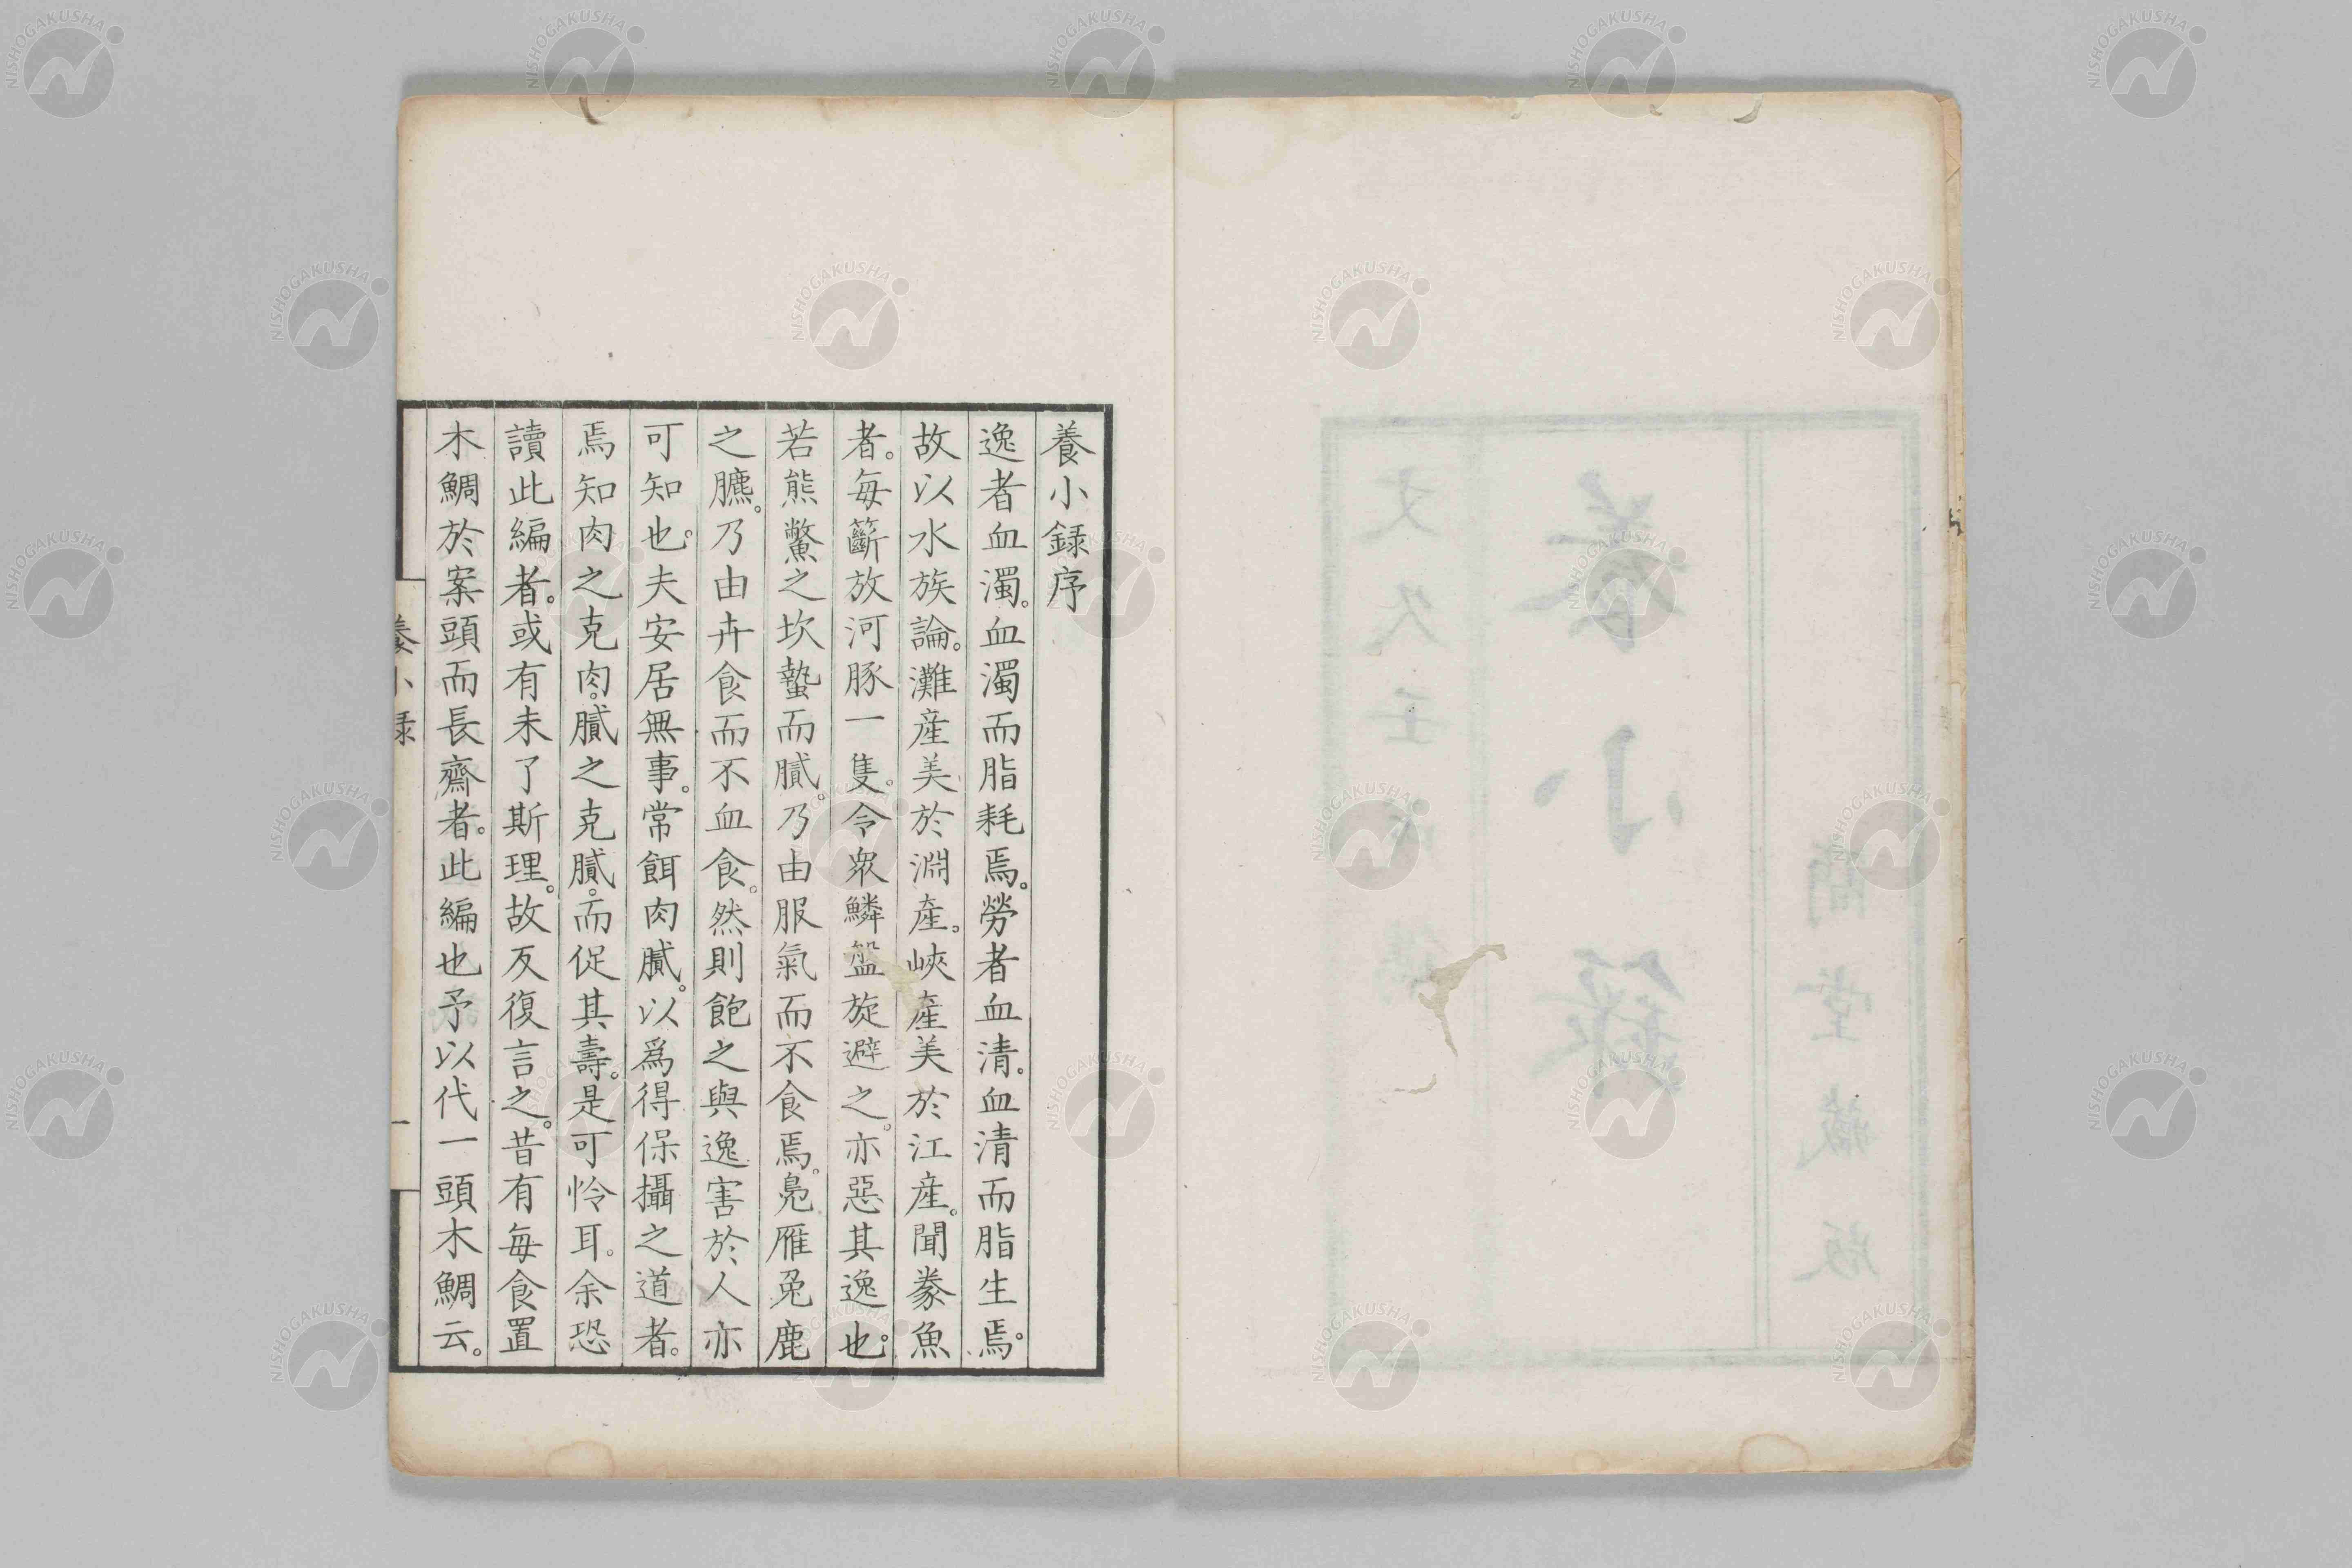 蘭堂藏版
養小錄
文久壬戌鐫
養小録序
逸者血濁。血濁而脂耗焉。勞者血清。血清而脂生焉。
故以水族論。灘産美於淵産。峽産美於江産。聞豢魚
者。毎籪放河豚一隻。令衆鱗盤旋避之。亦惡其逸也。
若熊鱉之坎蟄而膩。乃由服氣而不食焉。鳧雁兎鹿
之臕。乃由卉食而不血食。然則飽之與逸害於人亦
可知也。夫安居無事。常餌肉膩。以爲得保攝之道者。
焉知肉之克肉。膩之克膩。而促其壽。是可怜耳。余恐
讀此編者。或有未了斯理。故反復言之。昔有毎食置
木鯛於案頭而長齋者。此編也予以代一頭木鯛云。
養小録
一
NISHOGAKUSHA